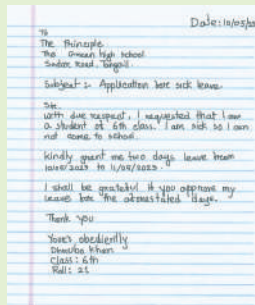 Date: 10/05/20
To
The Principle
The Green high school
Sador Road, Tangail.
Subject :- Application for sick leave.
Sir,
With due respect, I requested that I am
a student of 6th class. I am sick so I am
not come to school.
Kindly grant me two days leave from
10/05/2023 to 11/05/2023.
I shall be grateful if you approve my
leave for the aforestated days.
Thank you
Your's obediently
Khan
Class: 6th
Roll: 21